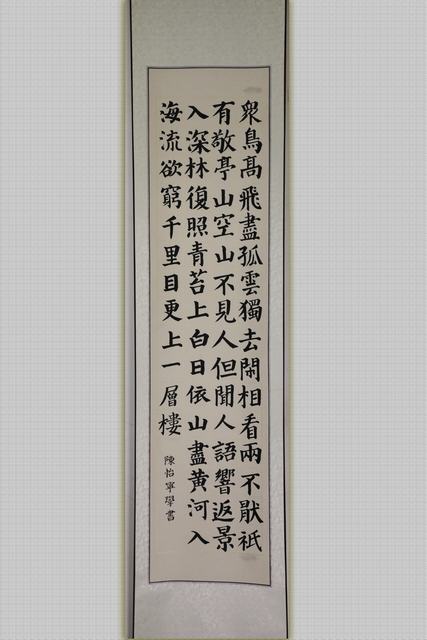 眾鳥高飛盡孤雲獨去閑相看兩不猒袛
有敬亭山空山不見人但聞人語響返景
入深林復照青苔上白日依山盡黃河入
海流欲窮千里目更上一層樓
陳怡寧學書